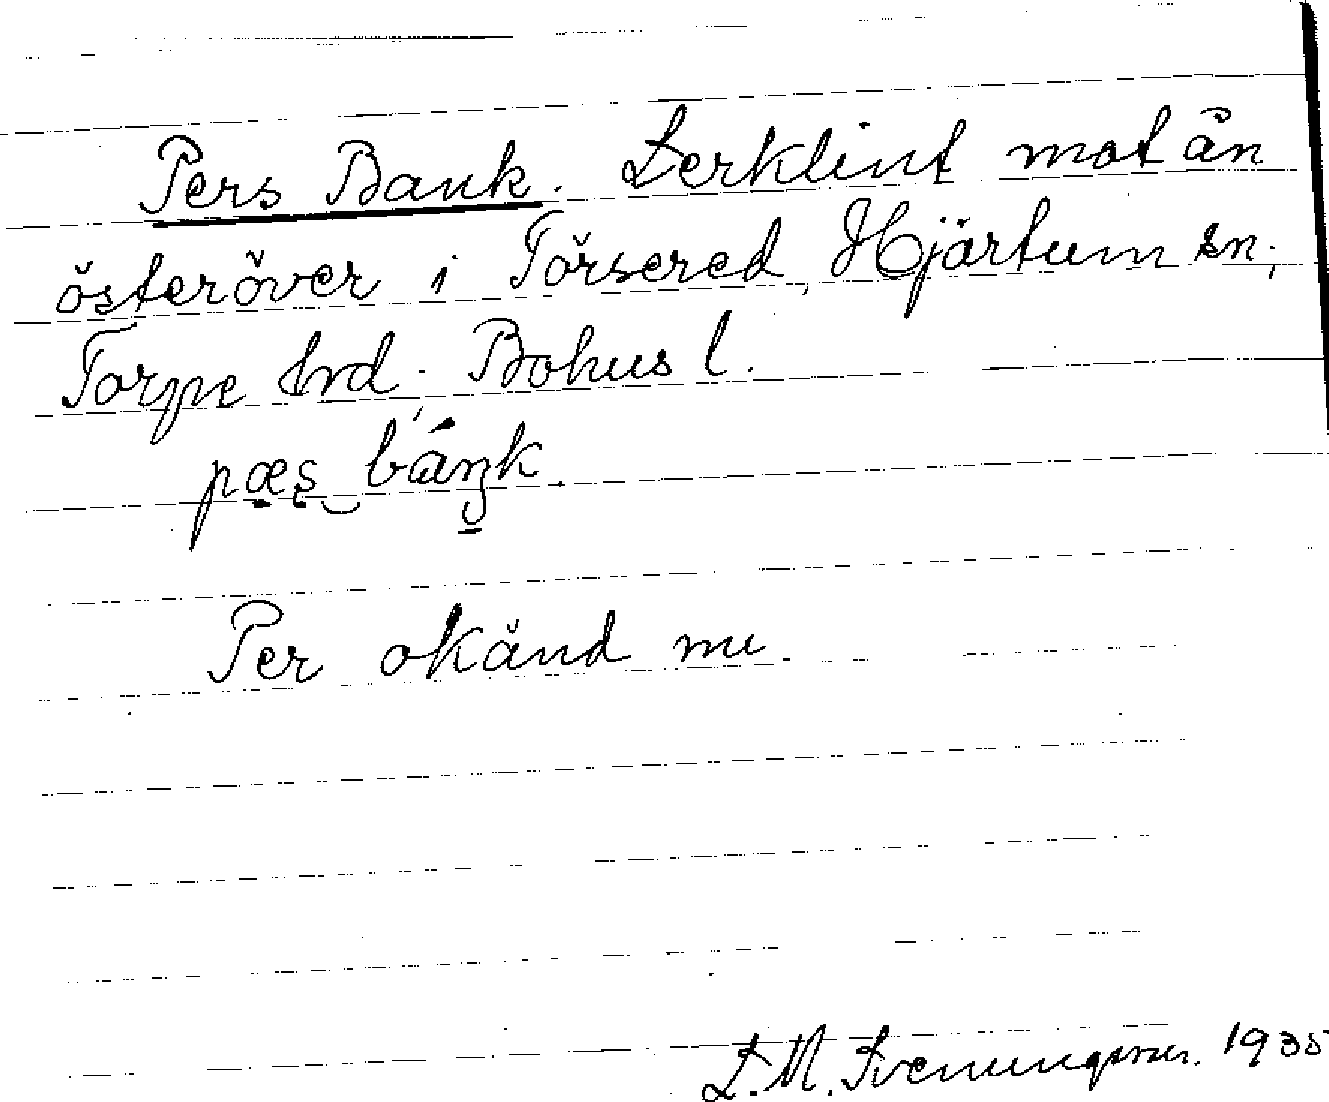 Pers Bank. Lerklint mot ån
österöver i Torsered, Hjärtum sn;
Torpe hrd. Bohus l.
pæs báŋk.
Per okänd nu.
L. M. Svenungsson. 1935